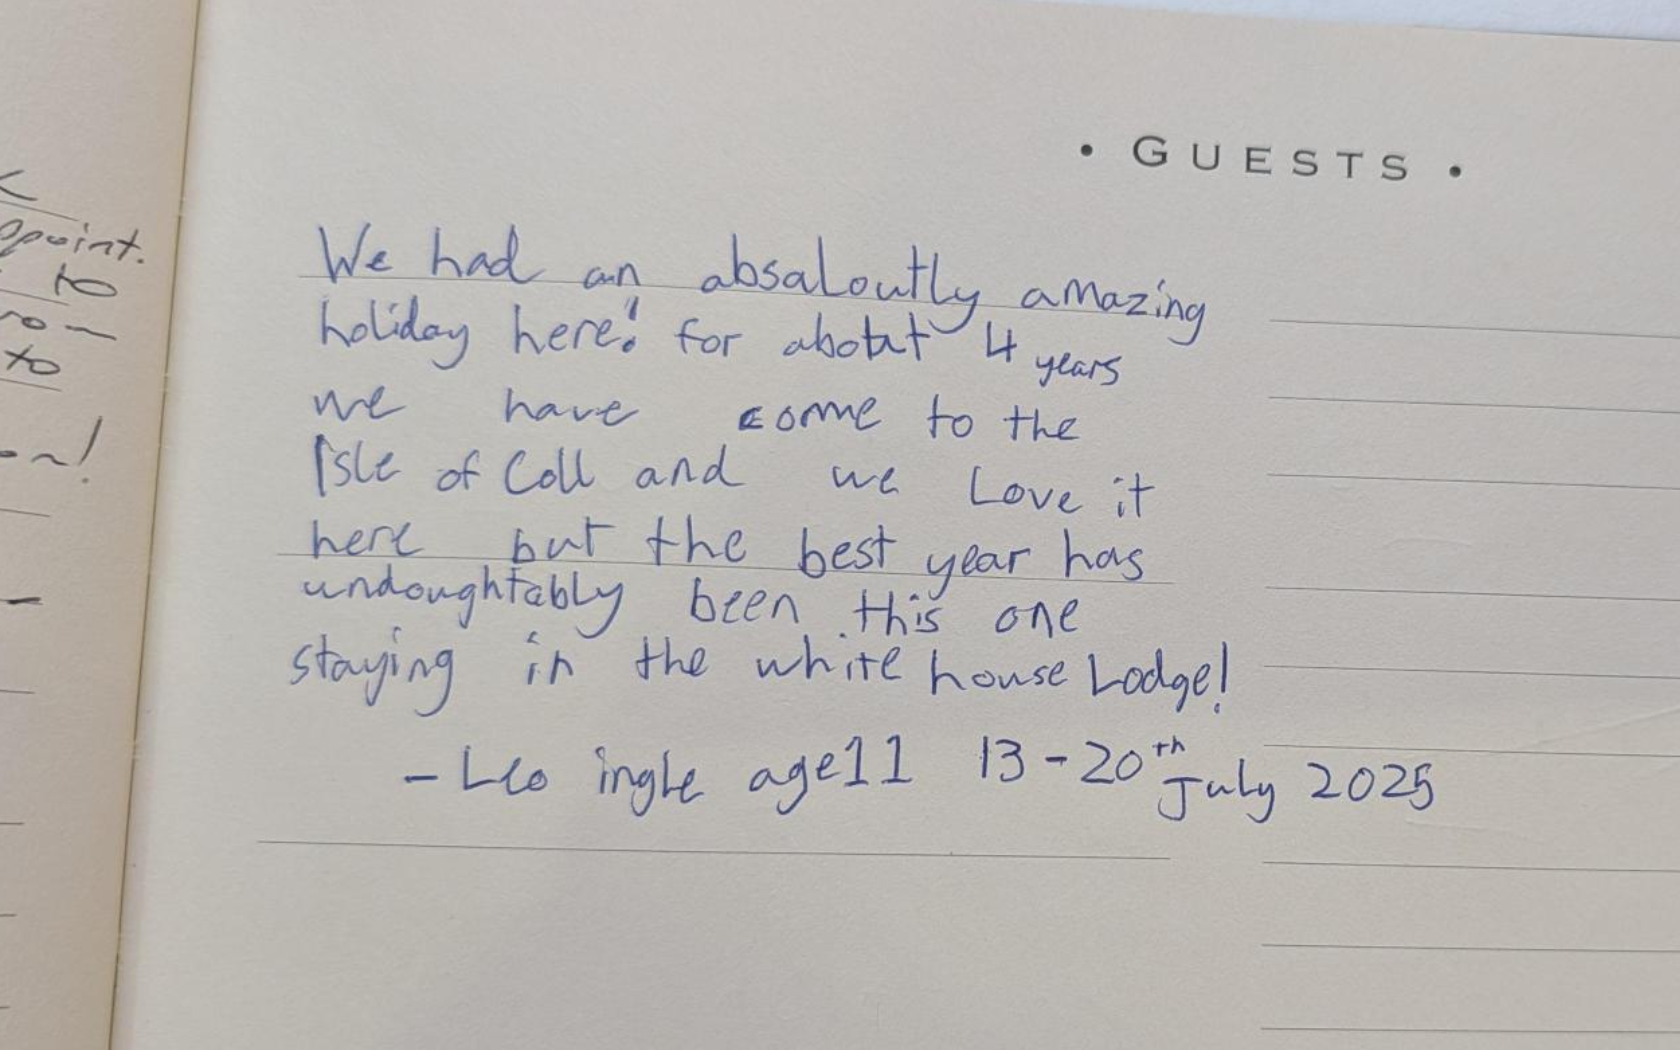 ppoint.
to
to
• GUESTS •
We had an absaloutly amazing
holiday here! for about 4 years
we have come to the
Isle of Coll and we Love it
here but the best year has
undoughtably been this one
staying in the white house Lodge!
- Leo ingle age 11 13-20th July 2025